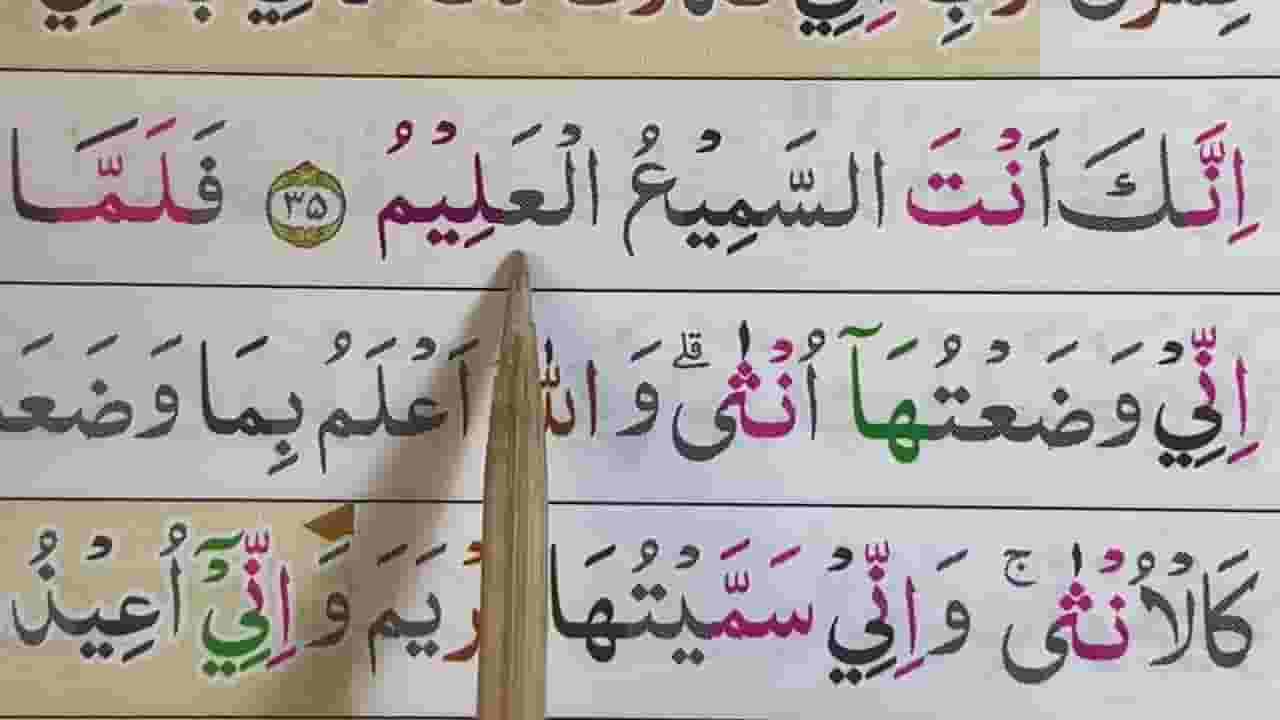 اِنَّكَ اَنْتَ السَّمِيْعُ الْعَلِيْمُ ۳۵ فَلَمَّا
اِنِّيْ وَضَعْتُهَآ اُنْثٰى ۗ وَ اللّٰهُ اَعْلَمُ بِمَا وَضَعَ
كَالْاُنْثٰى ۚ وَ اِنِّيْ سَمَّيْتُهَا مَرْيَمَ وَ اِنِّيْٓ اُعِيْذُ